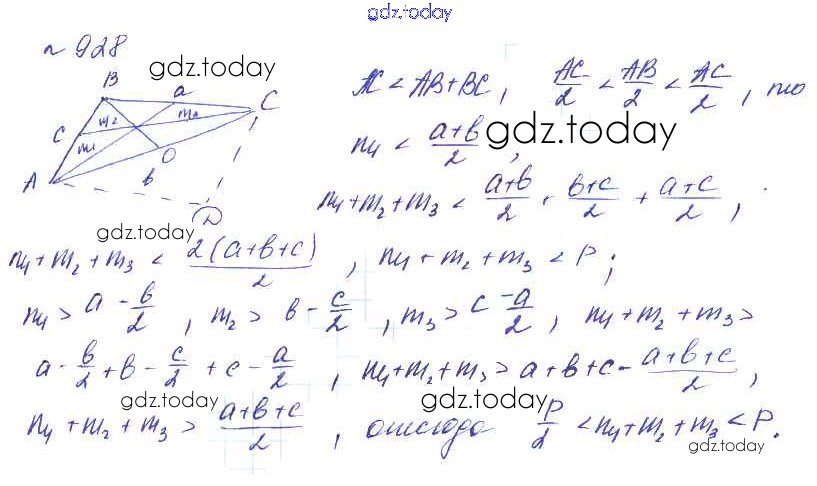 gdz.today
№ 928
B a C gdz.today
c m₂ m₃
m₁ O
A b D
AC < AB+BC, AC/2 < AB/2 < AC/2, то
m₁ < a+b/2, gdz.today
m₁+m₂+m₃ < a+b/2 + b+c/2 + a+c/2,
gdz.today
m₁+m₂+m₃ < 2(a+b+c)/2, m₁+m₂+m₃ < P;
m₁ > a - b/2, m₂ > b - c/2, m₃ > c - a/2, m₁+m₂+m₃ >
a - b/2 + b - c/2 + c - a/2, m₁+m₂+m₃ > a+b+c - a+b+c/2,
gdz.today gdz.today
m₁+m₂+m₃ > a+b+c/2, отсюда P/2 < m₁+m₂+m₃ < P.
gdz.today